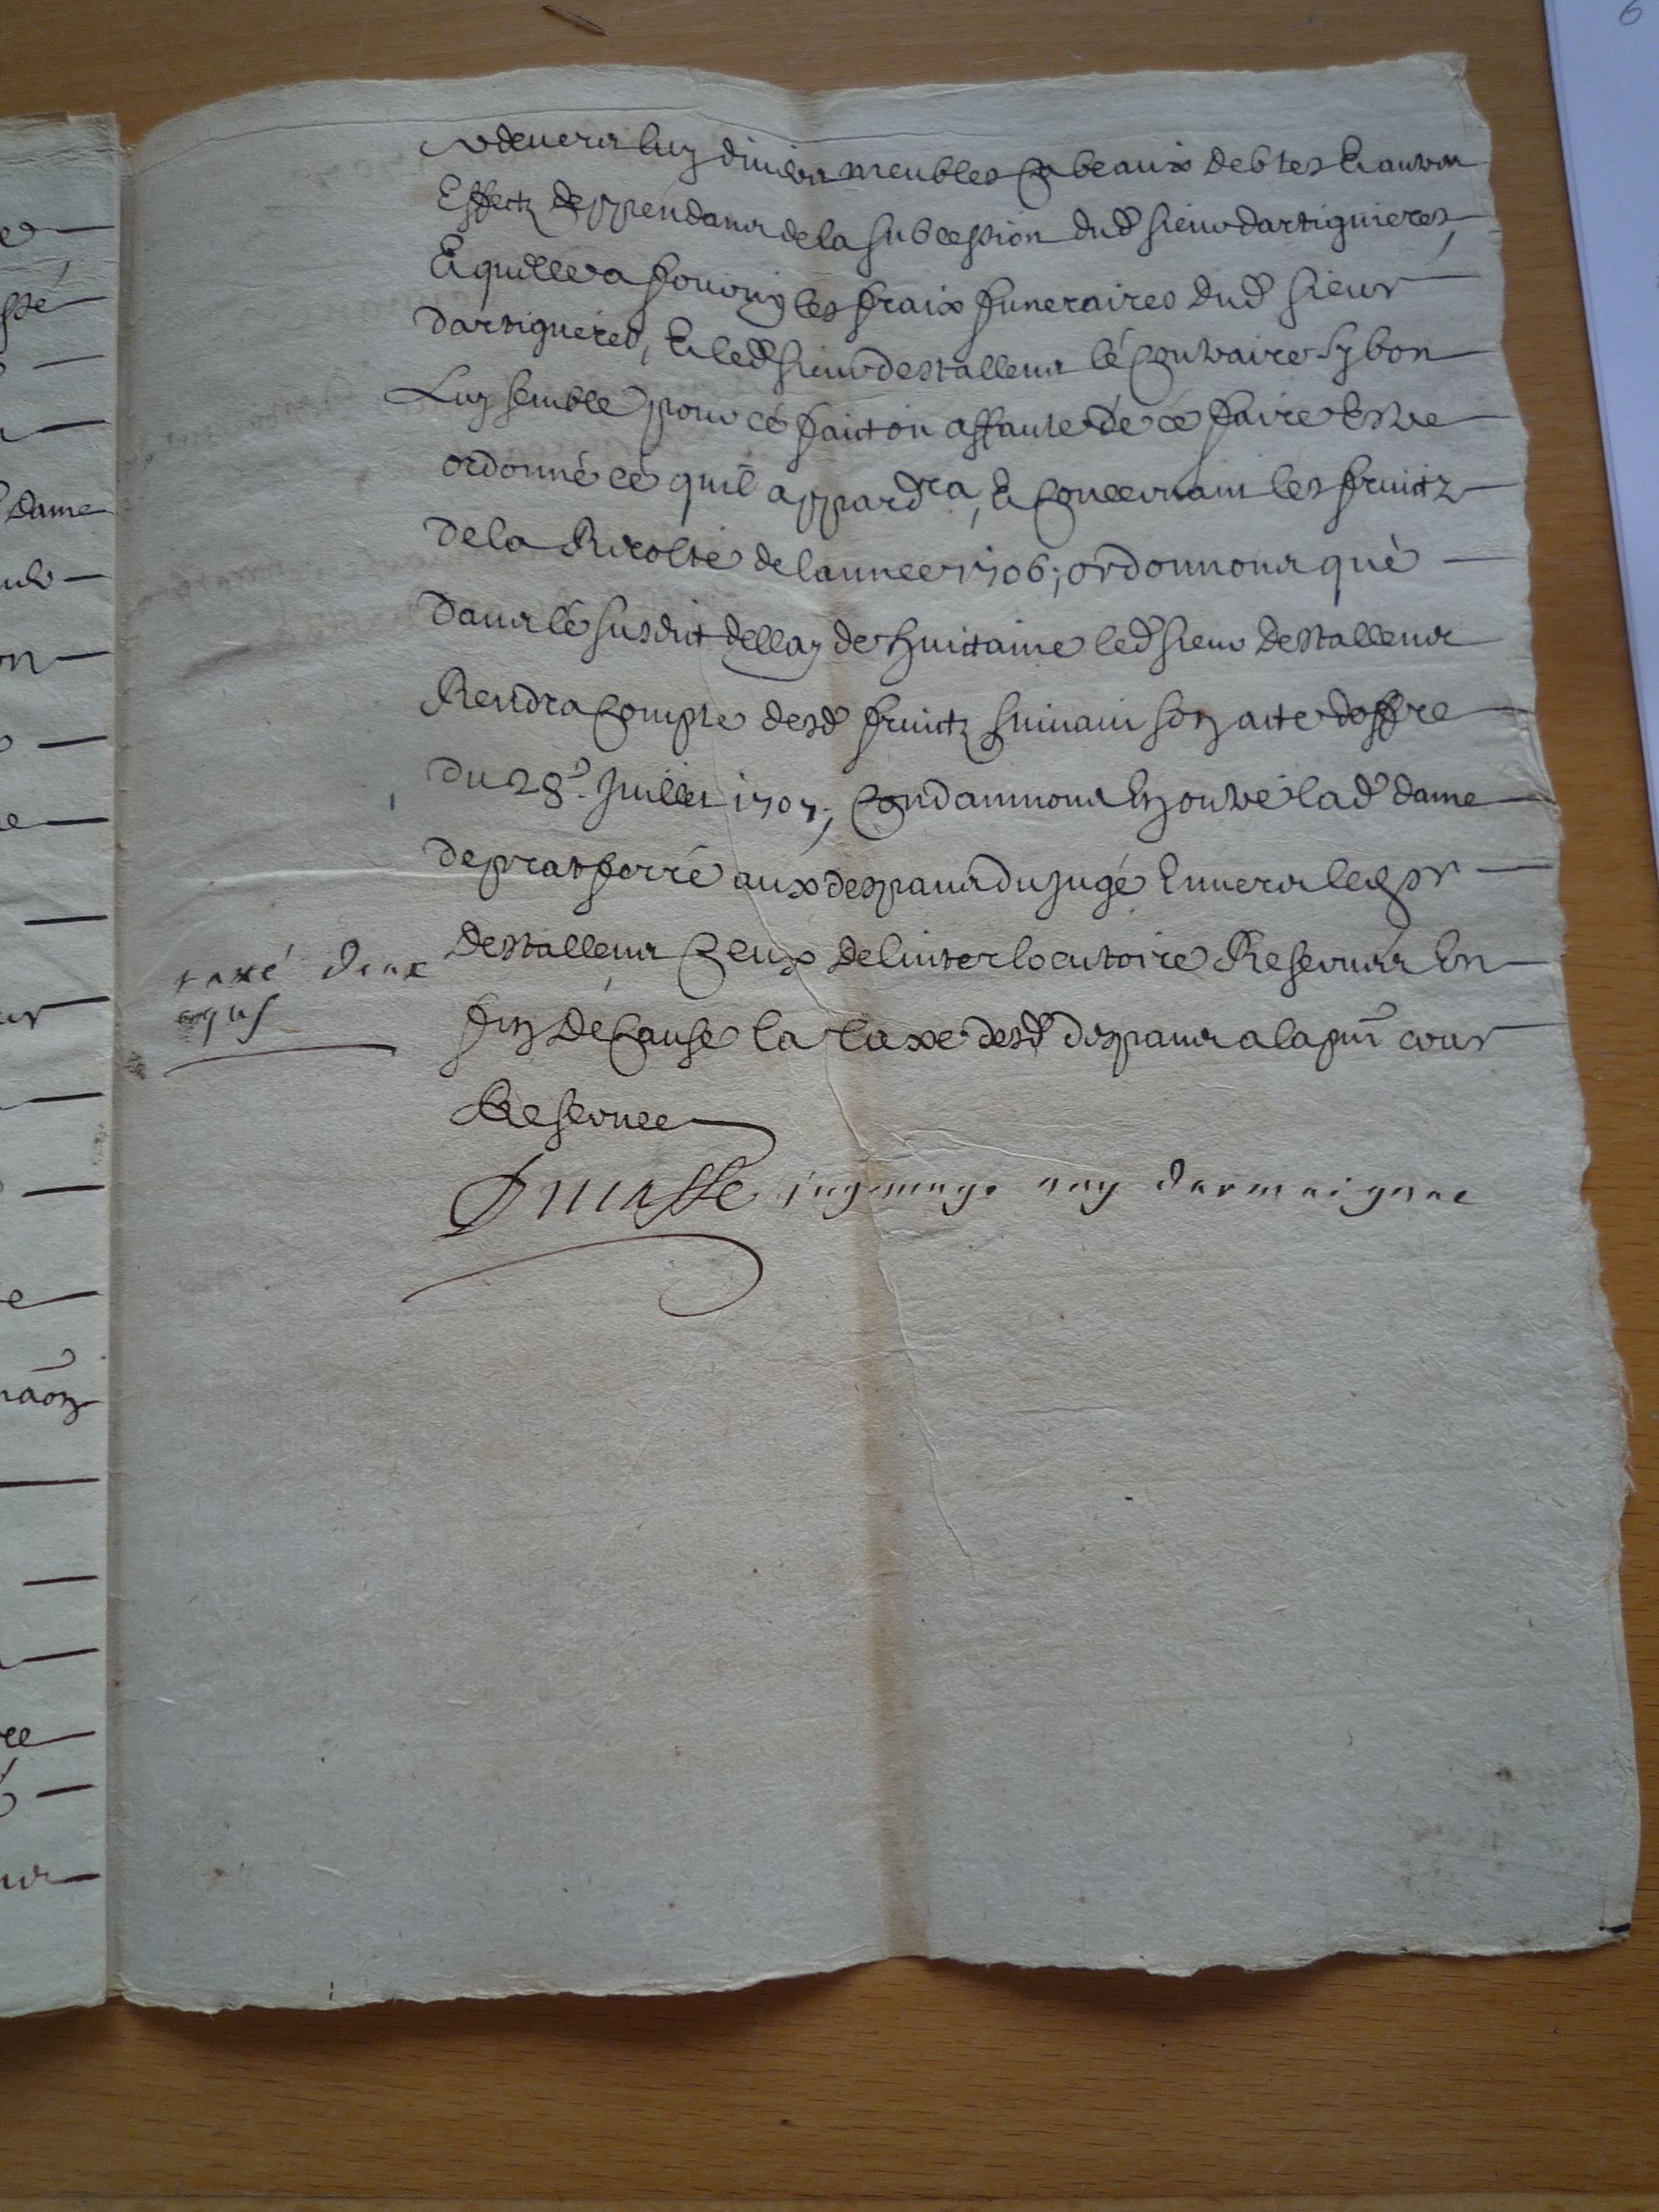 devers luy divers meubles cabeaux debtes & autres
Effectz deppendans de la subcession dud sieur dartiguieres,
& quelle a fourny les fraix funeraires dud sieur
dartiguieres, & led sieur destallens le contraire sy bon
Luy semble pour ce fait ou affaute de ce faire Estre
ordonné ce quil appardra, & concernant les fruitz
de la Recolte de lannee 1706; ordonnons que
dans le susdit dellay de huictaine led sieur destallens
Rendra compte desd fruitz suivant son acte doffre
du 28e. Juillet 1707; Condamnons En outre lad dame
de pratferré aux despans du jugé Envers led sr
destallens ceux de linterlocutoire Reservés En
fin de cause la taxe desd despans a la pnt cour
Reservee
taxé deux
equs
Dmasse juge mage
darmaignac
e
ssé
dame
on
re